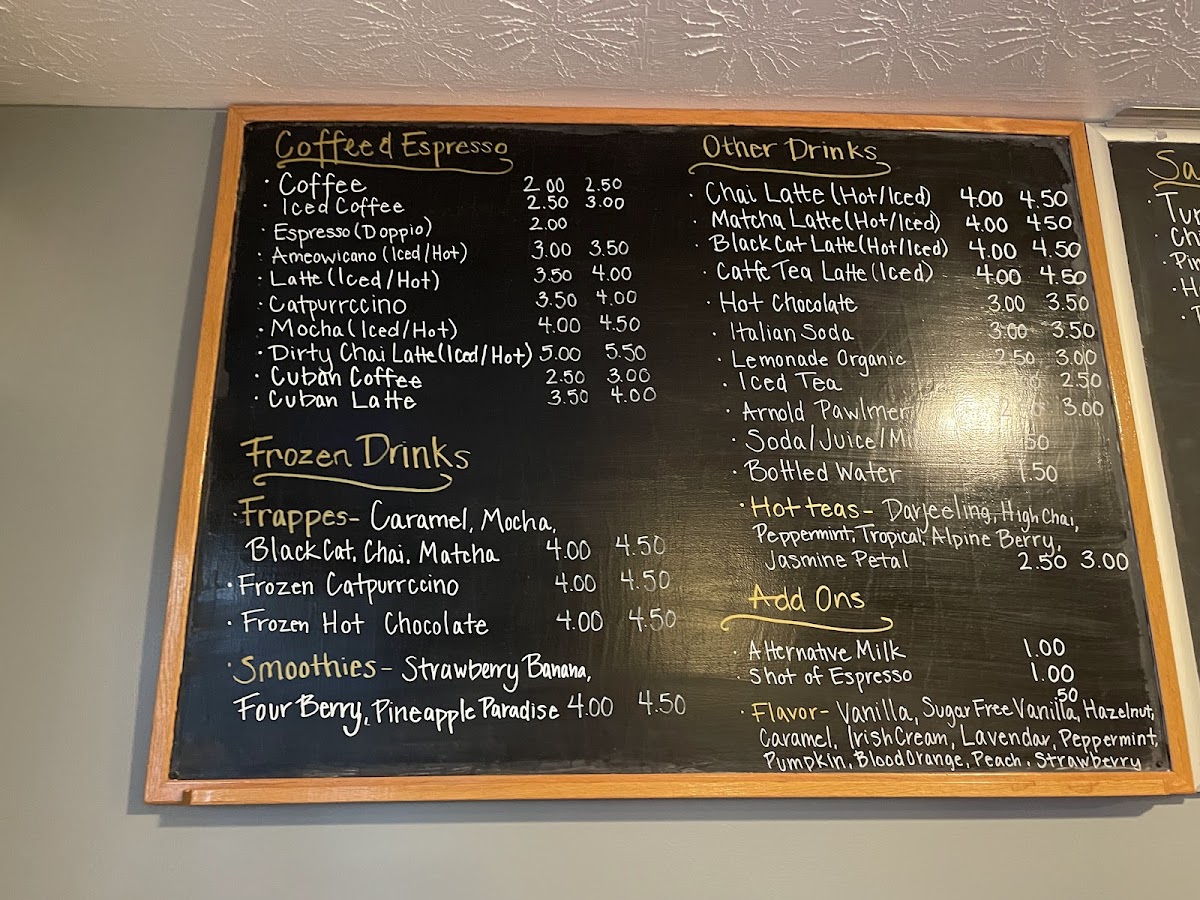 Coffee & Espresso
· Coffee 2.00 2.50
· Iced Coffee 2.50 3.00
· Espresso (Doppio) 2.00
· Ameowicano (Iced/Hot) 3.00 3.50
· Latte (Iced/Hot) 3.50 4.00
· Catpurrccino 3.50 4.00
· Mocha (Iced/Hot) 4.00 4.50
· Dirty Chai Latte (Iced/Hot) 5.00 5.50
· Cuban Coffee 2.50 3.00
· Cuban Latte 3.50 4.00
Frozen Drinks
· Frappes - Caramel, Mocha,
Black Cat, Chai, Matcha 4.00 4.50
· Frozen Catpurrccino 4.00 4.50
· Frozen Hot Chocolate 4.00 4.50
· Smoothies - Strawberry Banana,
Four Berry, Pineapple Paradise 4.00 4.50
Other Drinks
· Chai Latte (Hot/Iced) 4.00 4.50
· Matcha Latte (Hot/Iced) 4.00 450
· Black Cat Latte (Hot/Iced) 4.00 4.50
· Caffe Tea Latte (Iced) 4.00 4.50
· Hot Chocolate 3.00 3.50
· Italian Soda 3.00 3.50
· Lemonade Organic 2.50 3.00
· Iced Tea 2.50
· Arnold Pawlmer 3.00
· Soda/Juice/
· Bottled Water 1.50
· Hot teas - Darjeeling, High Chai,
Peppermint, Tropical, Alpine Berry,
Jasmine Petal 2.50 3.00
Add Ons
· Alternative Milk 1.00
· Shot of Espresso 1.00
.50
· Flavor - Vanilla, Sugar Free Vanilla, Hazelnut,
Caramel, Irish Cream, Lavendar, Peppermint,
Pumpkin, Blood Orange, Peach, Strawberry